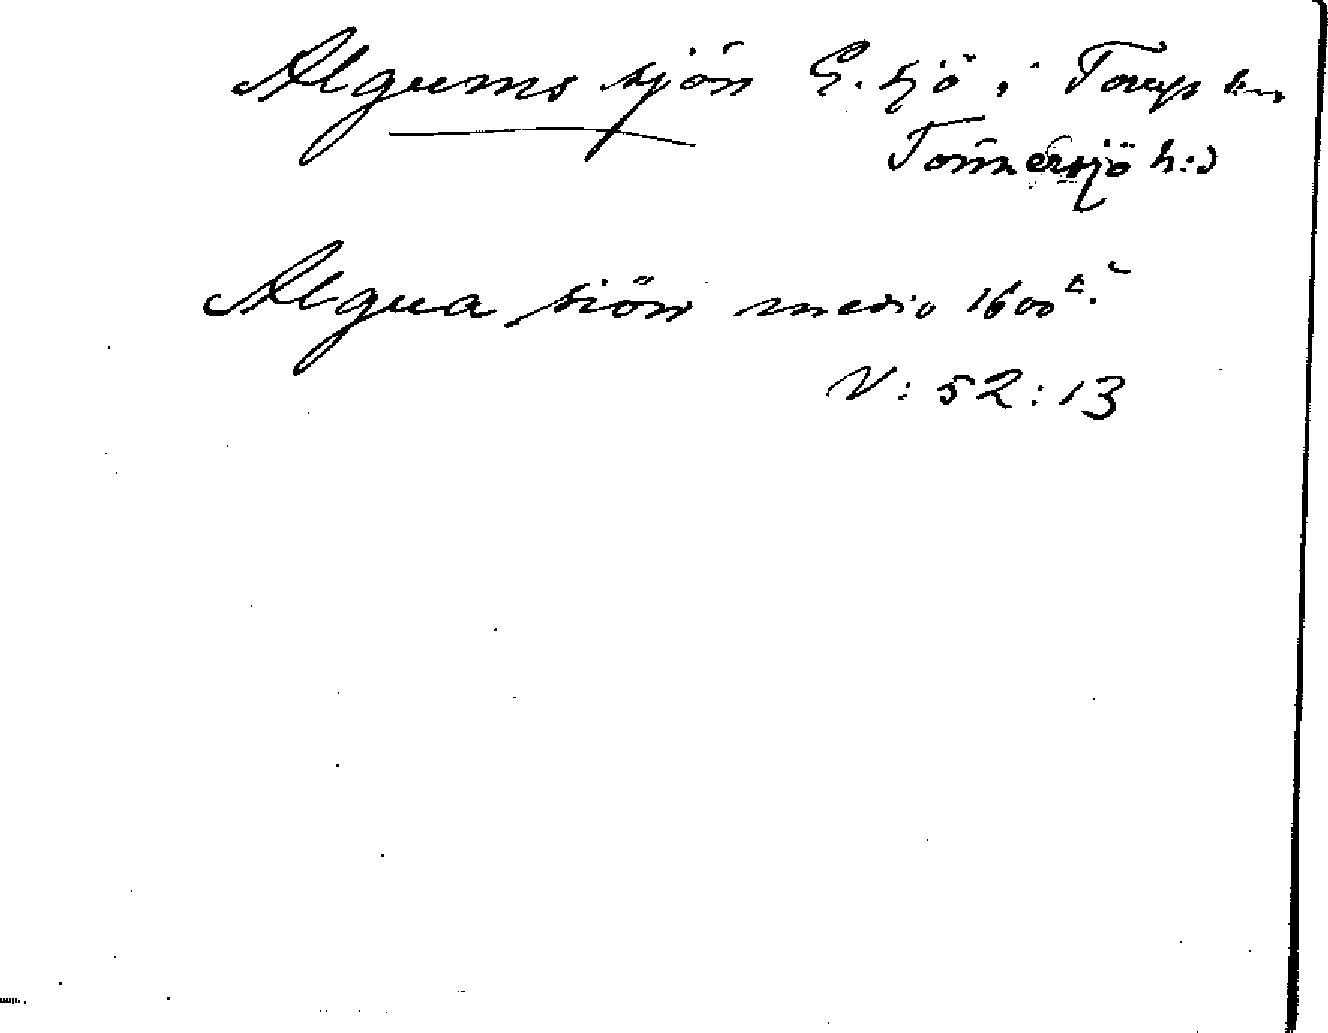 Algums sjön G. sjö i Torups sn,
Tönnersjö h:d
Algua siön medio 1600 t.
N: 52:13